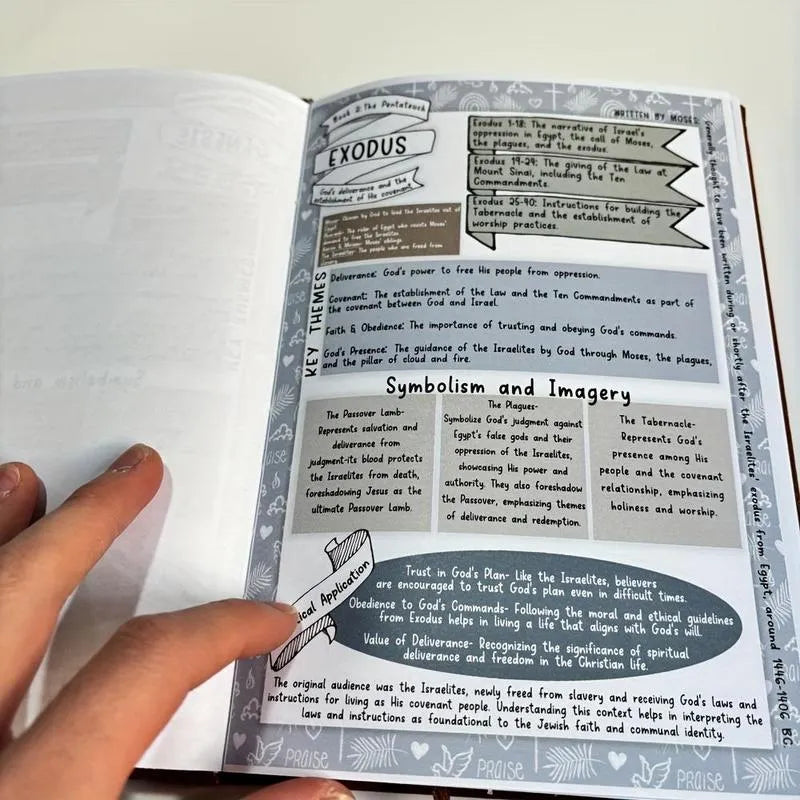 Book 2: The Pentateuch
EXODUS
God's deliverance and the
establishment of His covenant
WRITTEN BY MOSES
Exodus 1-18: The narrative of Israel's
oppression in Egypt, the call of Moses,
the plagues, and the exodus.
Exodus 19-24: The giving of the law at
Mount Sinai, including the Ten
Commandments.
Exodus 25-40: Instructions for building the
Tabernacle and the establishment of
worship practices.
Moses: Chosen by God to lead the Israelites out of
Egypt
Pharaoh: The ruler of Egypt who resists Moses'
demand to free the Israelites
Aaron & Miriam: Moses' siblings
The Israelites: The people who are freed from
slavery
KEY THEMES
Deliverance: God's power to free His people from oppression.
Covenant: The establishment of the Law and the Ten Commandments as part of
the covenant between God and Israel.
Faith & Obedience: The importance of trusting and obeying God's commands.
God's Presence: The guidance of the Israelites by God through Moses, the plagues,
and the pillar of cloud and fire.
Symbolism and Imagery
The Passover Lamb-
Represents salvation and
deliverance from
judgment-its blood protects
the Israelites from death,
foreshadowing Jesus as the
ultimate Passover Lamb.
The Plagues-
Symbolize God's judgment against
Egypt's false gods and their
oppression of the Israelites,
showcasing His power and
authority. They also foreshadow
the Passover, emphasizing themes
of deliverance and redemption.
The Tabernacle-
Represents God's
presence among His
people and the covenant
relationship, emphasizing
holiness and worship.
ical Application
Trust in God's Plan- Like the Israelites, believers
are encouraged to trust God's plan even in difficult times.
Obedience to God's Commands- Following the moral and ethical guidelines
from Exodus helps in living a life that aligns with God's will.
Value of Deliverance- Recognizing the significance of spiritual
deliverance and freedom in the Christian life.
The original audience was the Israelites, newly freed from slavery and receiving God's laws and
instructions for living as His covenant people. Understanding this context helps in interpreting the
laws and instructions as foundational to the Jewish faith and communal identity.
Generally thought to have been written during or shortly after the Israelites' exodus from Egypt, around 1446-1406 BC.
PRAISE
PRAISE
PRAISE